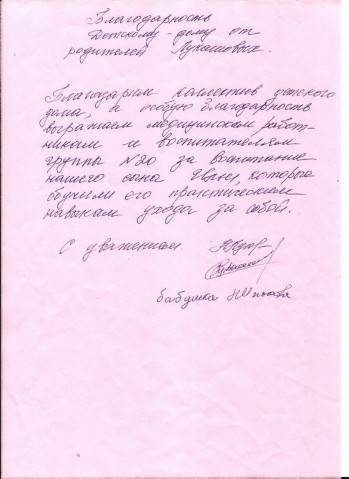 Благодарность
Детскому-дому от
родителей Лукашовых.
Благодарим коллектив детского
дома, а особую благодарность
выражаем медицинским работ-
никам и воспитателям
группа №20 за воспитание
нашего сына Ивана, которые
обучили его практическим
навыкам ухода за собой.
С уважением
бабушка